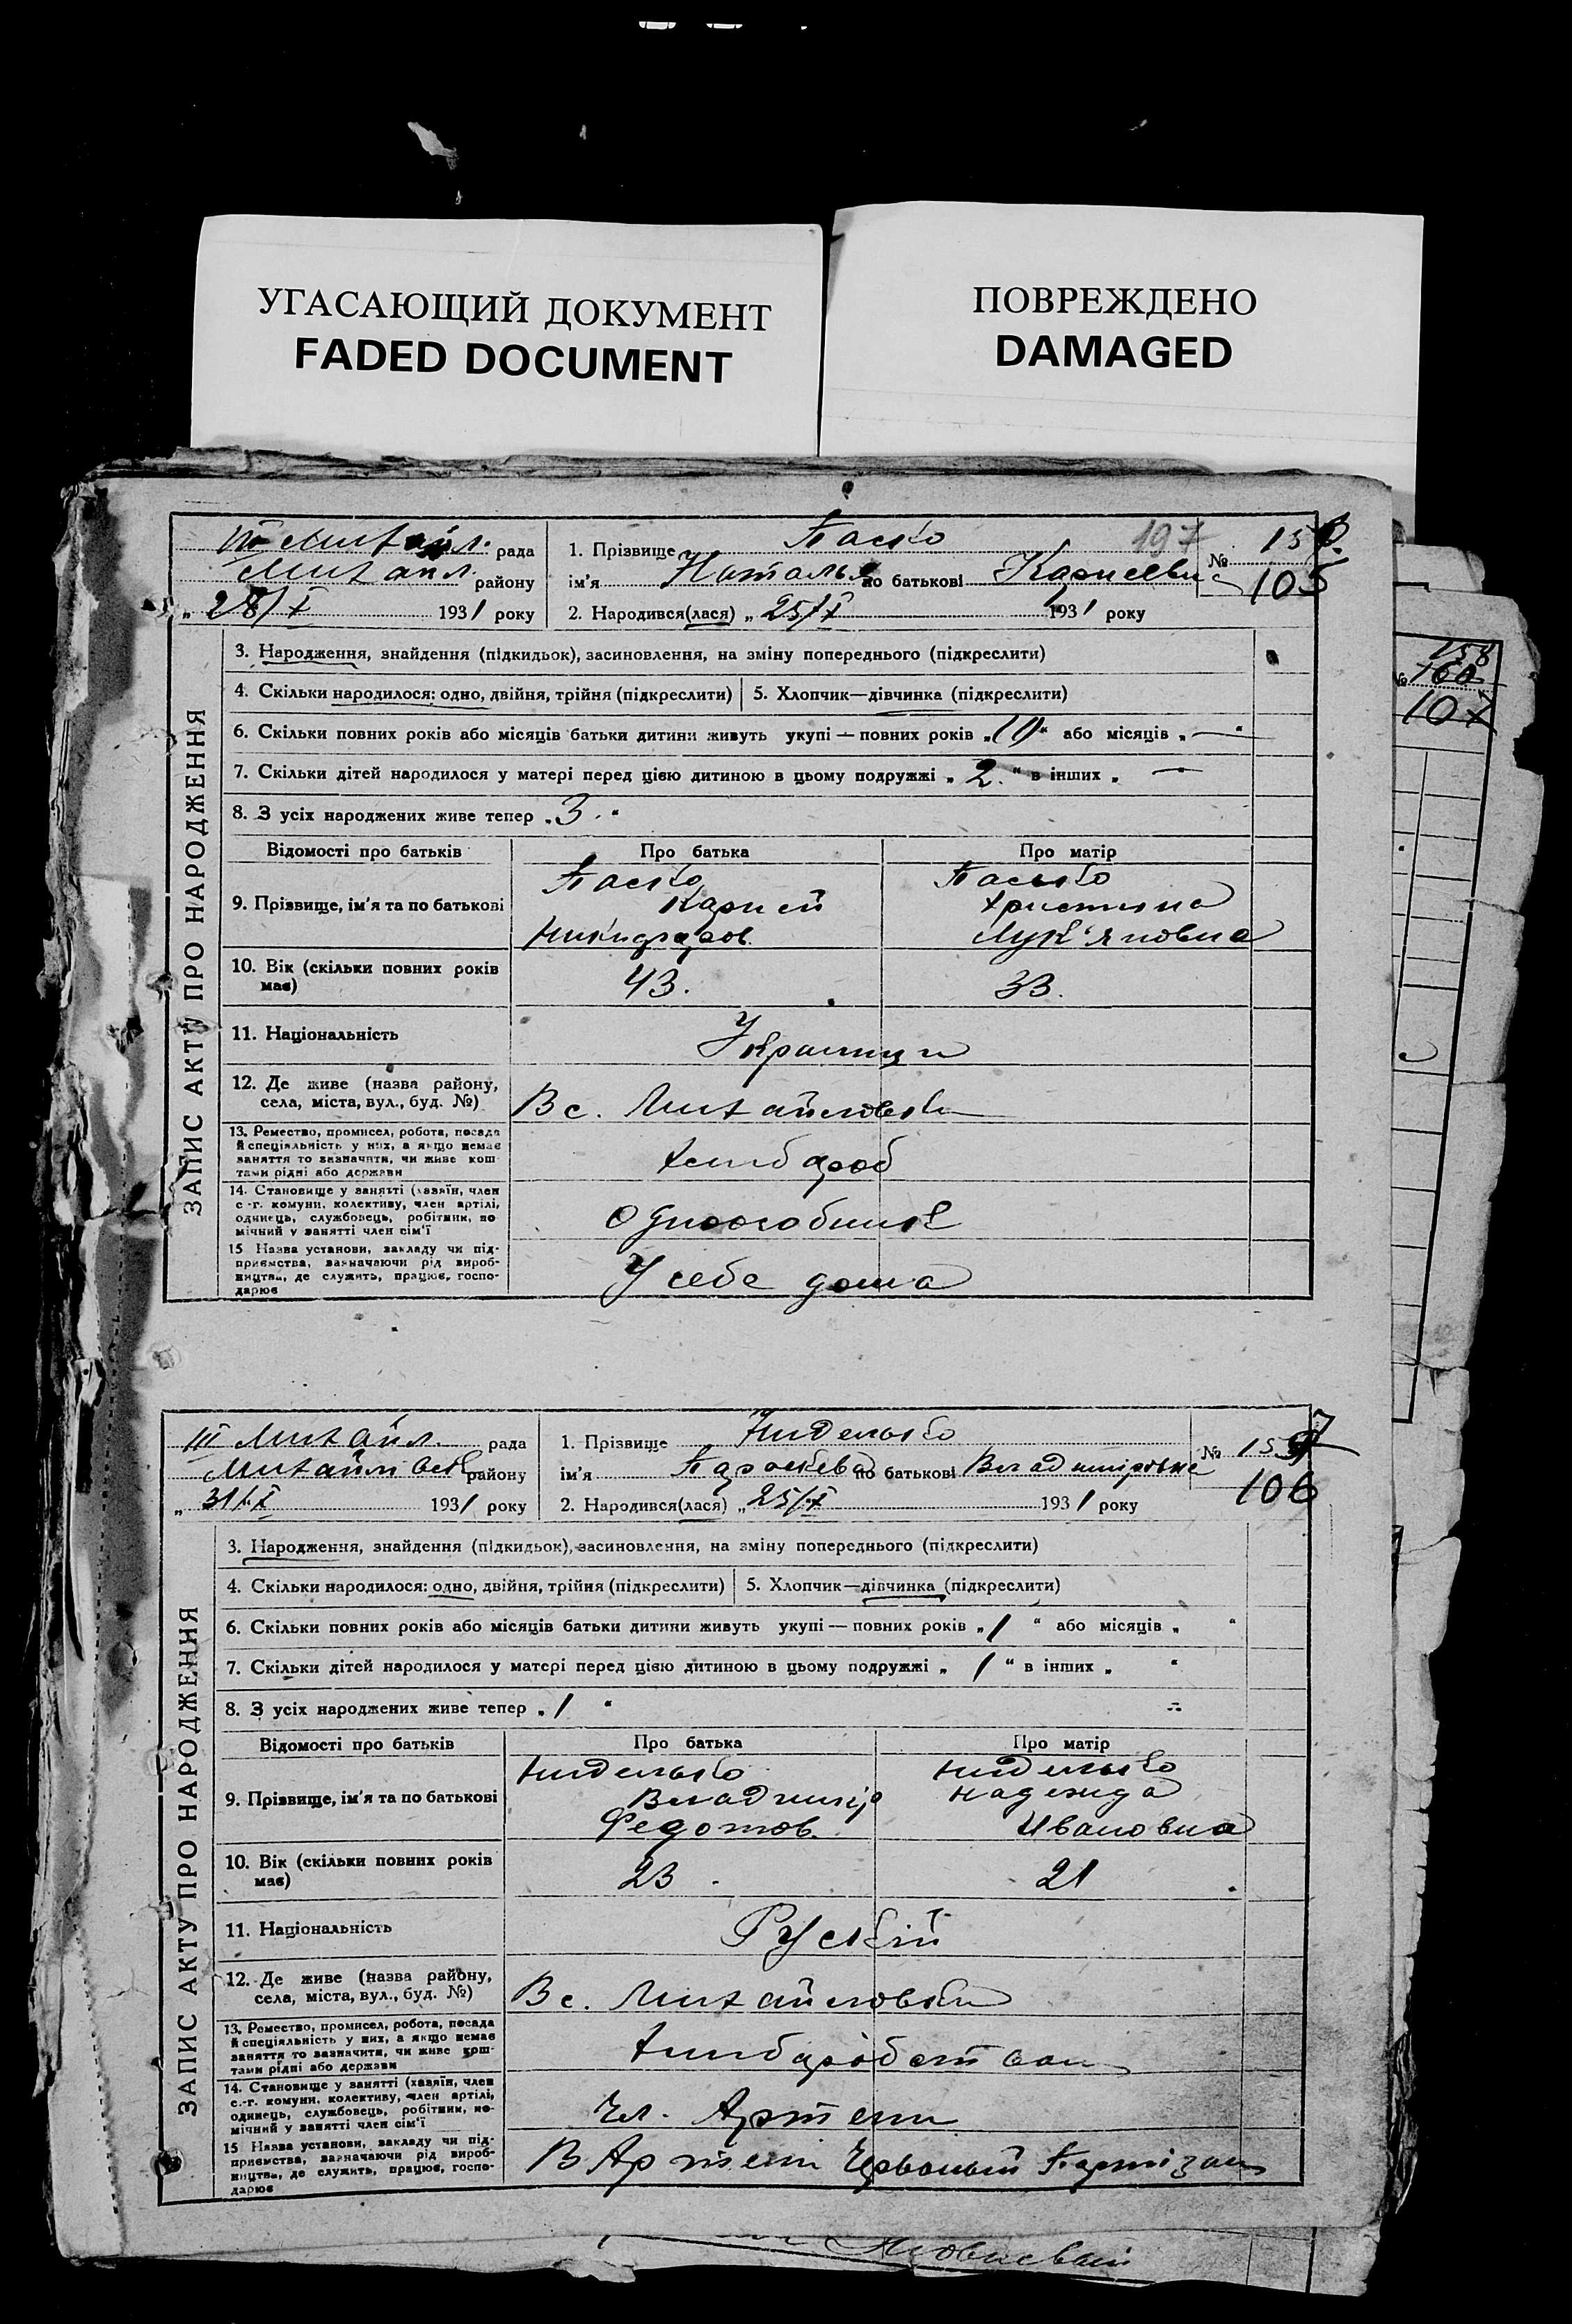 УГАСАЮЩИЙ ДОКУМЕНТ
FADED DOCUMENT
ПОВРЕЖДЕНО
DAMAGED
ЗАПИС АКТУ ПРО НАРОДЖЕННЯ
III Михайл. рада
Михайл. району
„ 28/X 1931 року
1. Прізвище Пасько
197
№ 105
ім'я Наталья по батькові Карпеевна
2. Народився(лася) „ 25/X 1931 року
3. Народження, знайдення (підкидьок), засиновлення, на зміну попереднього (підкреслити)
4. Скільки народилося: одно, двійня, трійня (підкреслити)
5. Хлопчик—дівчинка (підкреслити)
6. Скільки повних років або місяців батьки дитини живуть укупі — повних років „ 10 “ або місяців „ — “
7. Скільки дітей народилося у матері перед цією дитиною в цьому подружжі „ 2. “ в інших „ —
8. З усіх народжених живе тепер „ 3. “
Відомості про батьків
Про батька
Про матір
9. Прізвище, ім'я та по батькові
Пасько
Карпей
Никифоров.
Пасько
Христина
Лук'яновна
10. Вік (скільки повних років має)
43.
33.
11. Національність
Украинци
12. Де живе (назва району,
села, міста, вул., буд. №)
В с. Михайловки
13. Ремество, промисел, робота, посада
й спеціяльність у них, а якщо немає
заняття то зазначити, чи живе кош-
тами рідні або держави
хлибароб
14. Становище у занятті (хазяїн, член
с.-г. комуни, колективу, член артілі,
одинець, службовець, робітник, по-
мічний у занятті член сім'ї
Одноособник
15 Назва установи, закладу чи під-
приємства, зазначаючи рід вироб-
ництва, де служить, працює, госпо-
дарює
У себе дома
158
160
107
ЗАПИС АКТУ ПРО НАРОДЖЕННЯ
III Михайл. рада
Михайлівськ району
„ 31/X 1931 року
1. Прізвище Ниделько
№ 157
106
ім'я Парасkева по батькові Владимировна
2. Народився(лася) „ 25/X 1931 року
3. Народження, знайдення (підкидьок), засиновлення, на зміну попереднього (підкреслити)
4. Скільки народилося: одно, двійня, трійня (підкреслити)
5. Хлопчик—дівчинка (підкреслити)
6. Скільки повних років або місяців батьки дитини живуть укупі — повних років „ 1 “ або місяців „ “
7. Скільки дітей народилося у матері перед цією дитиною в цьому подружжі „ 1 “ в інших „ “
8. З усіх народжених живе тепер „ 1 “
Відомості про батьків
Про батька
Про матір
9. Прізвище, ім'я та по батькові
Ниделько
Владимір
Федотов.
Ниделько
Надежда
Ивановна
10. Вік (скільки повних років має)
23
21
11. Національність
Рускій
12. Де живе (назва району,
села, міста, вул., буд. №)
В с. Михайловки
13. Ремество, промисел, робота, посада
й спеціяльність у них, а якщо немає
заняття то зазначити, чи живе кош-
тами рідні або держави
14. Становище у занятті (хазяїн, член
с.-г. комуни, колективу, член артілі,
одинець, службовець, робітник, по-
мічний у занятті член сім'ї
Чл. Артели
15 Назва установи, закладу чи під-
приємства, зазначаючи рід вироб-
ництва, де служить, працює, госпо-
дарює
В Артели Червоный Партізан